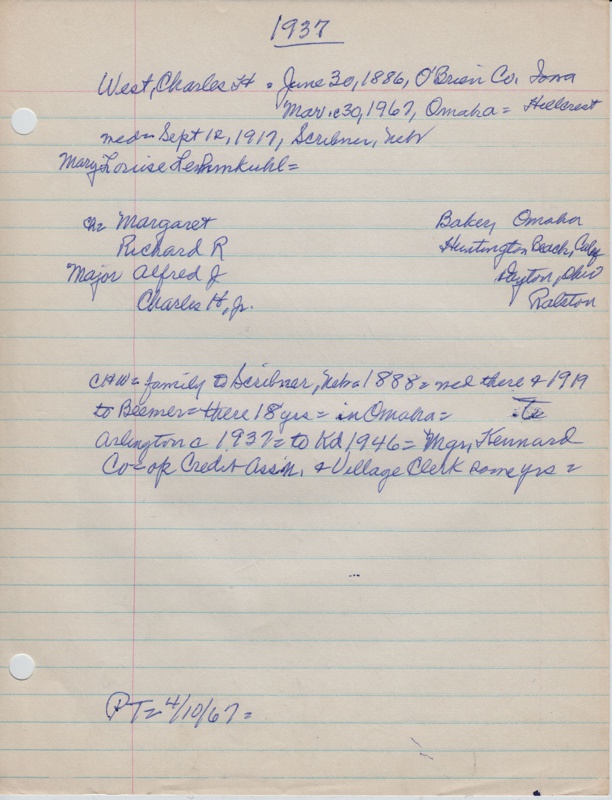 1937
West, Charles H = June 30, 1886, O'Brien Co. Iowa
Mar. c30, 1967, Omaha = Hillcrest
med = Sept 12, 1917, Scribner, Neb
Mary Louise =
Ch = Margaret Baker, Omaha
Richard R Huntington Beach, Calif
Major Alfred J Dayton, Ohio
Charles H, Jr. Ralston
CHW = family to Scribner, Neb = 1888 = med there & 1919
to Beemer = there 18 yrs = in Omaha = To
Arlington c 1937 = to Kd 1946 = Mgr, Kennard
Co-op Credit Assn, & Village Clerk some yrs =
PT = 4/10/67 =